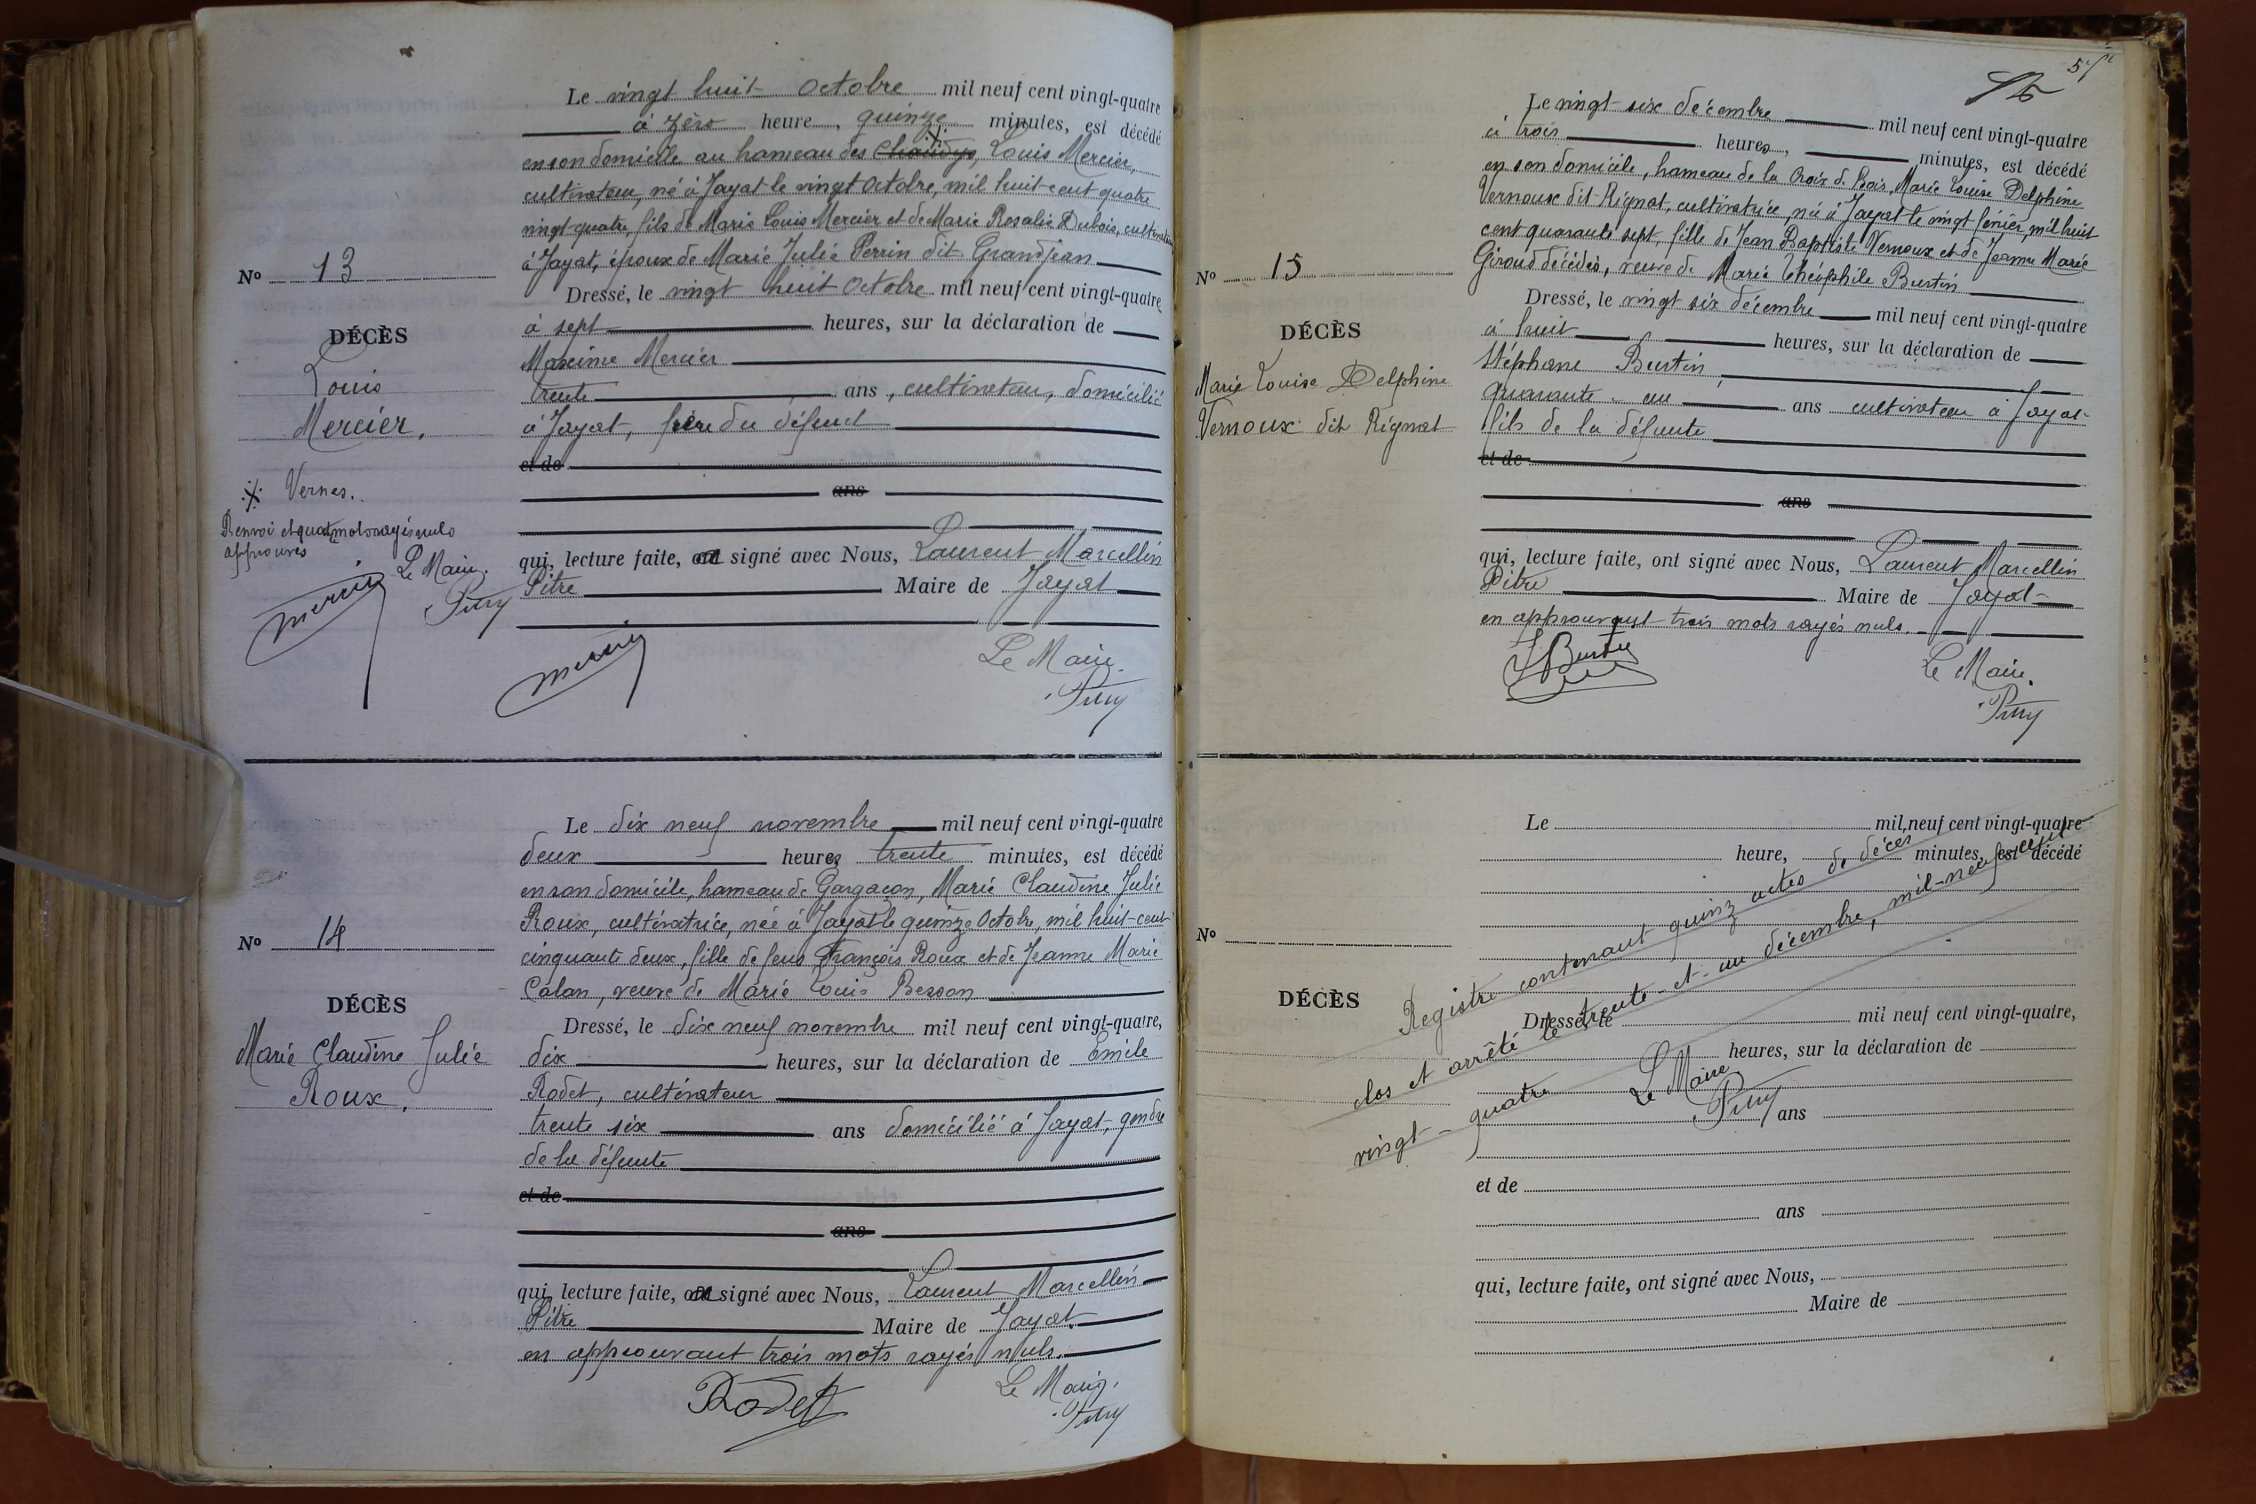 Le vingt huit Octobre mil neuf cent vingt-quatre
à zéro heure, quinze minutes, est décédé
en son domicile au hameau des Chaudys, Louis Mercier,
cultivateur, né à Jayat le vingt Octobre, mil huit-cent quatre
vingt-quatre, fils de Marie Louis Mercier et de Marie Rosalie Dubois, cultivateurs
à Jayat, époux de Marie Julie Perrin dit Grandjean
No 13
Dressé, le vingt huit Octobre mil neuf cent vingt-quatre
à sept heures, sur la déclaration de
DÉCÈS
Maxime Mercier
Louis
trente ans, cultivateur, domicilié
Mercier.
à Jayat, frère du défunt
et de
ans
·/· Vernes.
Renvoi et quatre mots rayés nuls
approuvés
Le Maire.
mercier
Pitre
qui, lecture faite, a signé avec Nous, Laurent Marcellin
Pitre Maire de Jayat
mercier
Le Maire.
Pitre
Le dix neuf novembre mil neuf cent vingt-quatre
deux heures trente minutes, est décédé
en son domicile, hameau de Gargaçon, Marie Claudine Julie
Roux, cultivatrice, née à Jayat le quinze Octobre, mil huit-cent
cinquante deux, fille de feus François Roux et de Jeanne Marie
Calan, veuve de Marie Louis Besson
No 14
DÉCÈS
Marie Claudine Julie
Roux.
Dressé, le dix neuf novembre mil neuf cent vingt-quatre,
dix heures, sur la déclaration de Emile
Rodet, cultivateur
trente six ans domicilié à Jayat, gendre
de la défunte
et de
ans
qui, lecture faite, a signé avec Nous, Laurent Marcellin
Pitre Maire de Jayat.
en approuvant trois mots rayés nuls.
Rodet
Le Maire.
Pitre
57
Le vingt six décembre mil neuf cent vingt-quatre
à trois heures, minutes, est décédé
en son domicile, hameau de la Croix de Bois, Marie Louise Delphine
Vernoux dit Rignat, cultivatrice, née à Jayat le vingt février, mil huit
cent quarante sept, fille de Jean Baptiste Vernoux et de Jeanne Marie
Giroud décédés, veuve de Marie Théophile Burtin
No 15
DÉCÈS
Marie Louise Delphine
Vernoux dit Rignat
Dressé, le vingt six décembre mil neuf cent vingt-quatre
à huit heures, sur la déclaration de
Stéphane Burtin,
quarante-un ans cultivateur à Jayat
fils de la défunte
et de
ans
qui, lecture faite, ont signé avec Nous, Laurent Marcellin
Pitre Maire de Jayat
en approuvant trois mots rayés nuls.
Burtin
Le Maire.
Pitre
Le mil neuf cent vingt-quatre
heure, minutes, est décédé
No
DÉCÈS
Registre contenant quinze actes de décès
clos et arrêté le trente-et-un décembre, mil-neuf-cent
vingt-quatre
Le Maire
Pitre
Dressé, le mil neuf cent vingt-quatre,
heures, sur la déclaration de
ans
et de
ans
qui, lecture faite, ont signé avec Nous,
Maire de